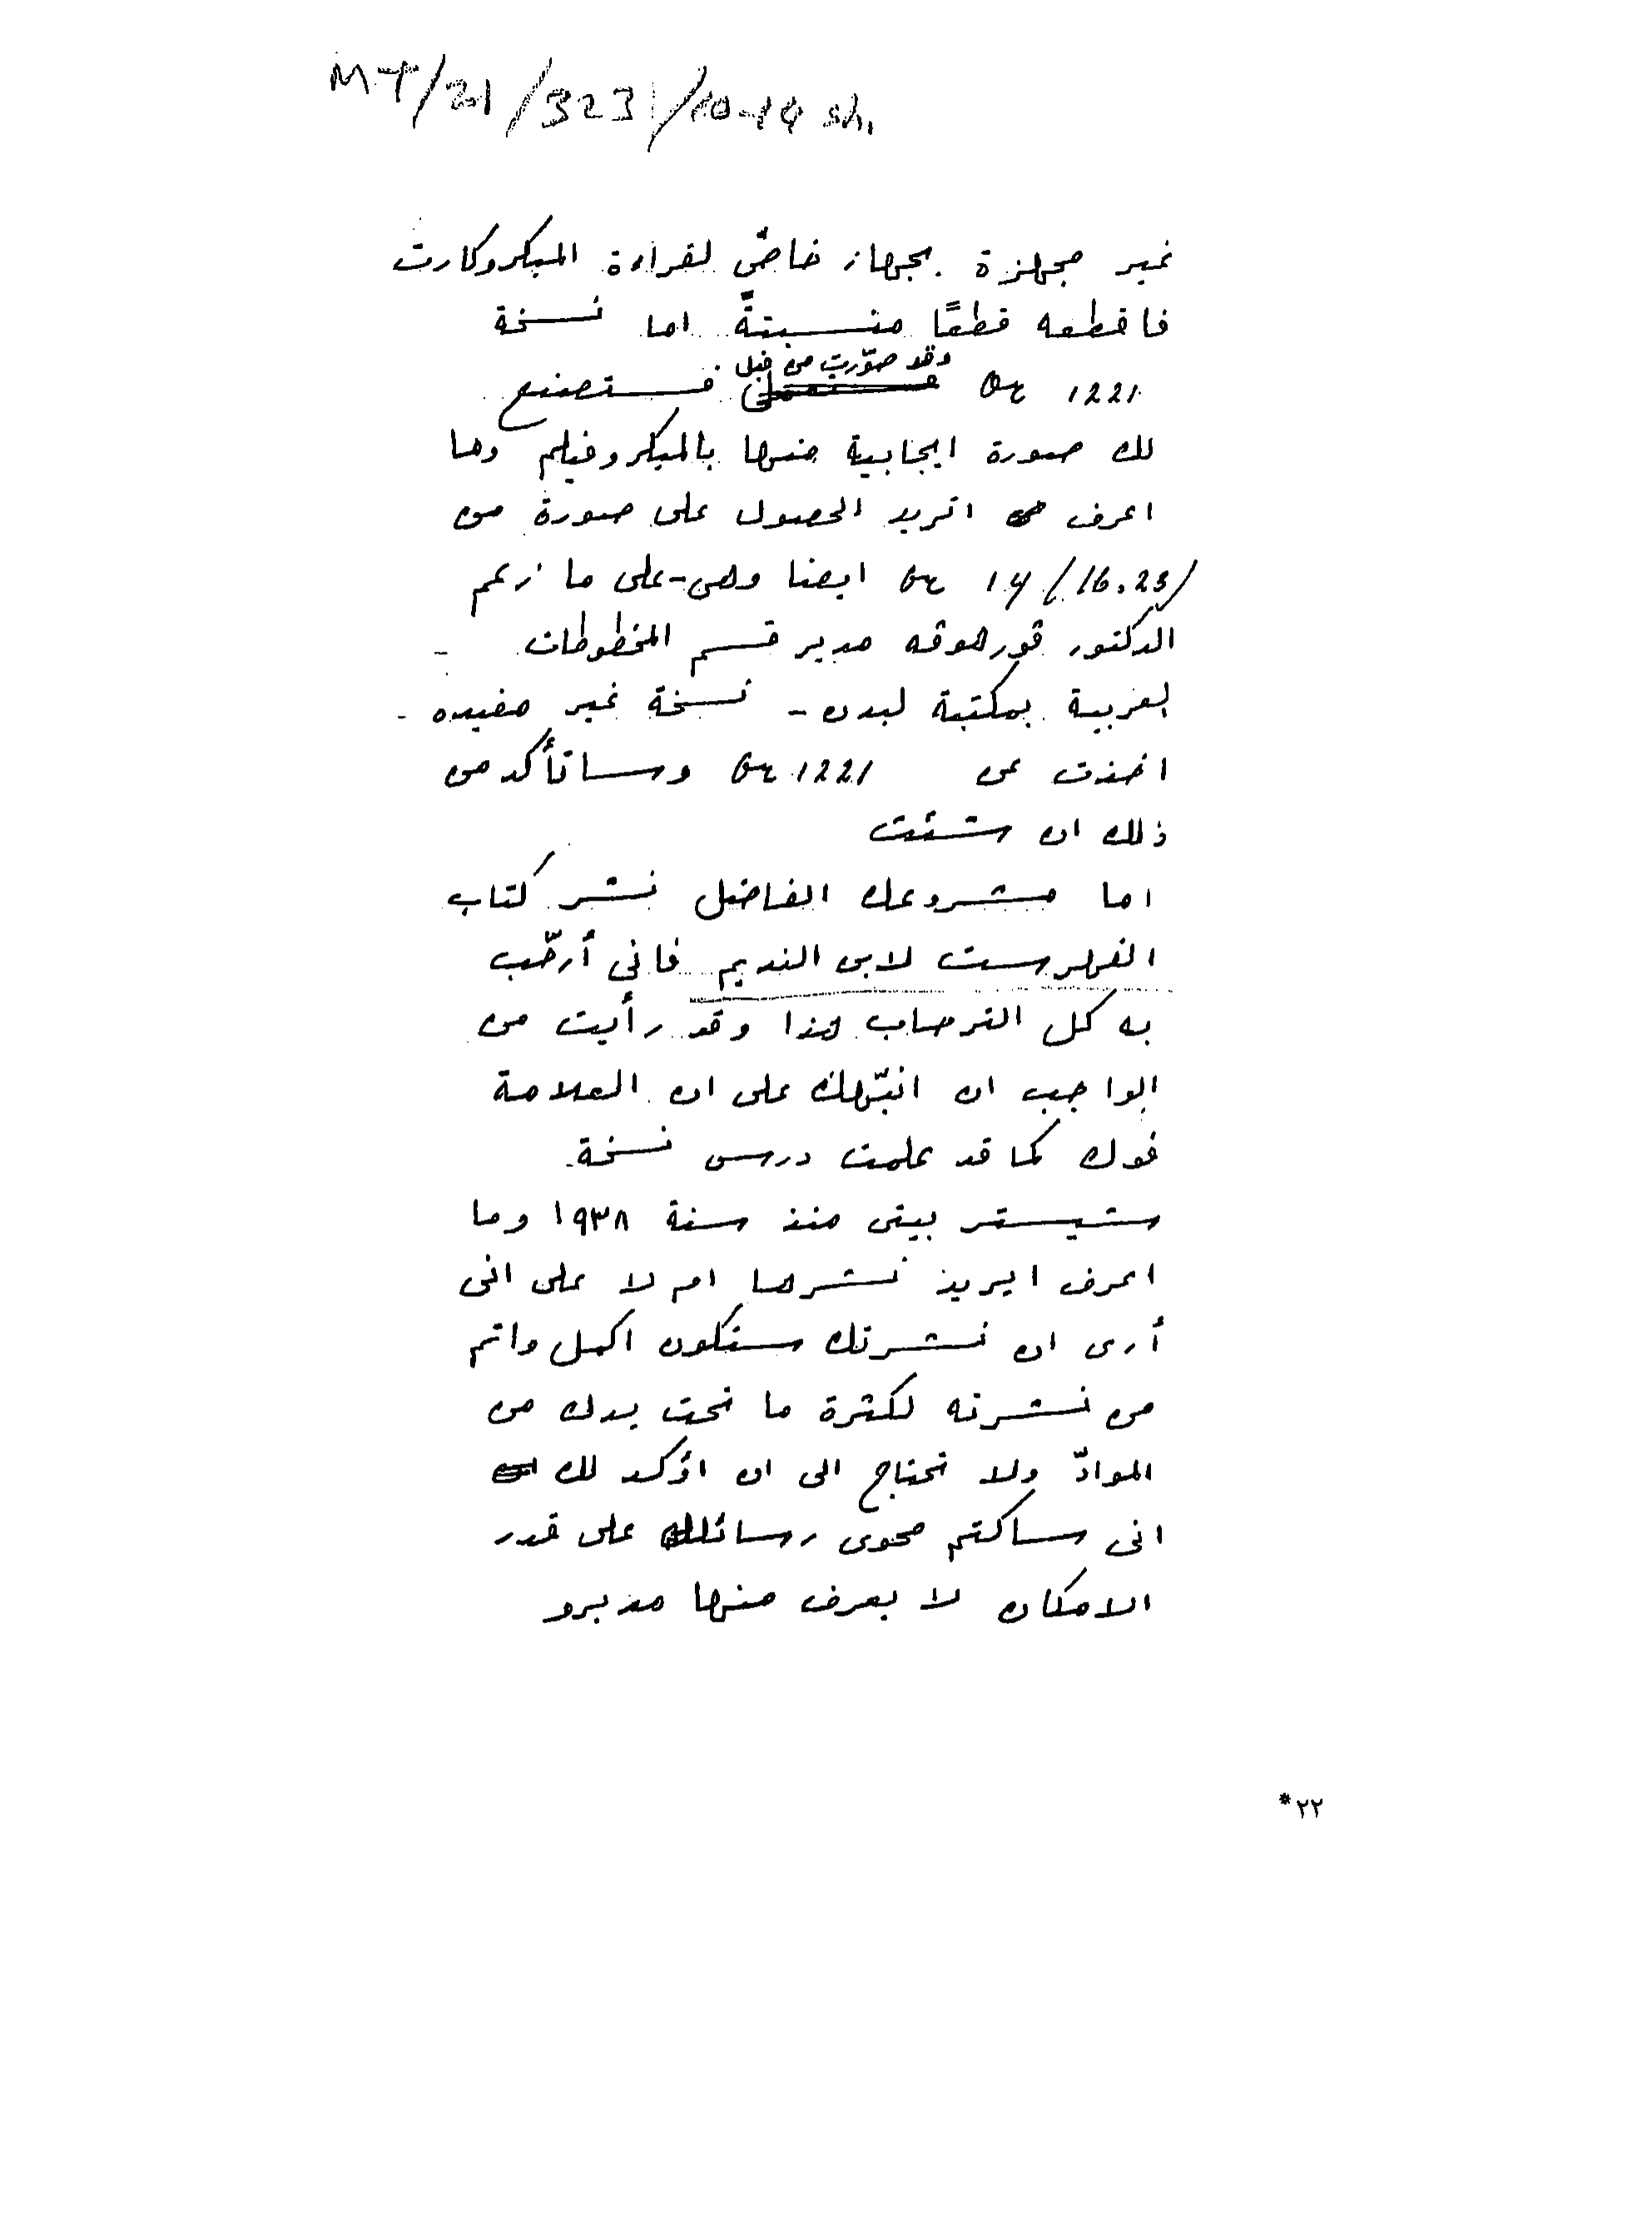 MT/21/323/10-14 sh.
غير مجهزة بجهاز خاصّ لقراءة الميكروكارت
فاقطعه قطعًا منسبتةً اما نسخة
وقد صوّرت من قبل
Or 1221 فستصنع
لك صورة ايجابية منها بالميكروفيلم وما
اعرف اتريد الحصول على صورة من
Or 14/16.23/ ايضا وهى - على ما زعم
الدكتور ڤورهوڤه مدير قسم المخطوطات -
العربية بمكتبة ليدن - نسخة غير مفيده -
اخذت عن Or 1221 وساتأكد من
ذلك ان شئت
اما مشروعك الفاضل نشر كتاب
الفهرست لابن النديم فانى أرحّب
به كل الترحاب هذا وقد رأيت من
الواجب ان انبّهك على ان العلامة
فوك كما قد علمت درس نسخة
شيستر بيتى منذ سنة ١٩٣٨ وما
اعرف ايريد نشرها ام لا على انى
أرى ان نشرتك ستكون اكمل واتم
من نشرته لكثرة ما تحت يدك من
الموادّ ولا تحتاج الى ان اؤكد لك
انى ساكتم محوى رسائلك على قدر
الامكان لا يعرف منها مديرو
*٢٢